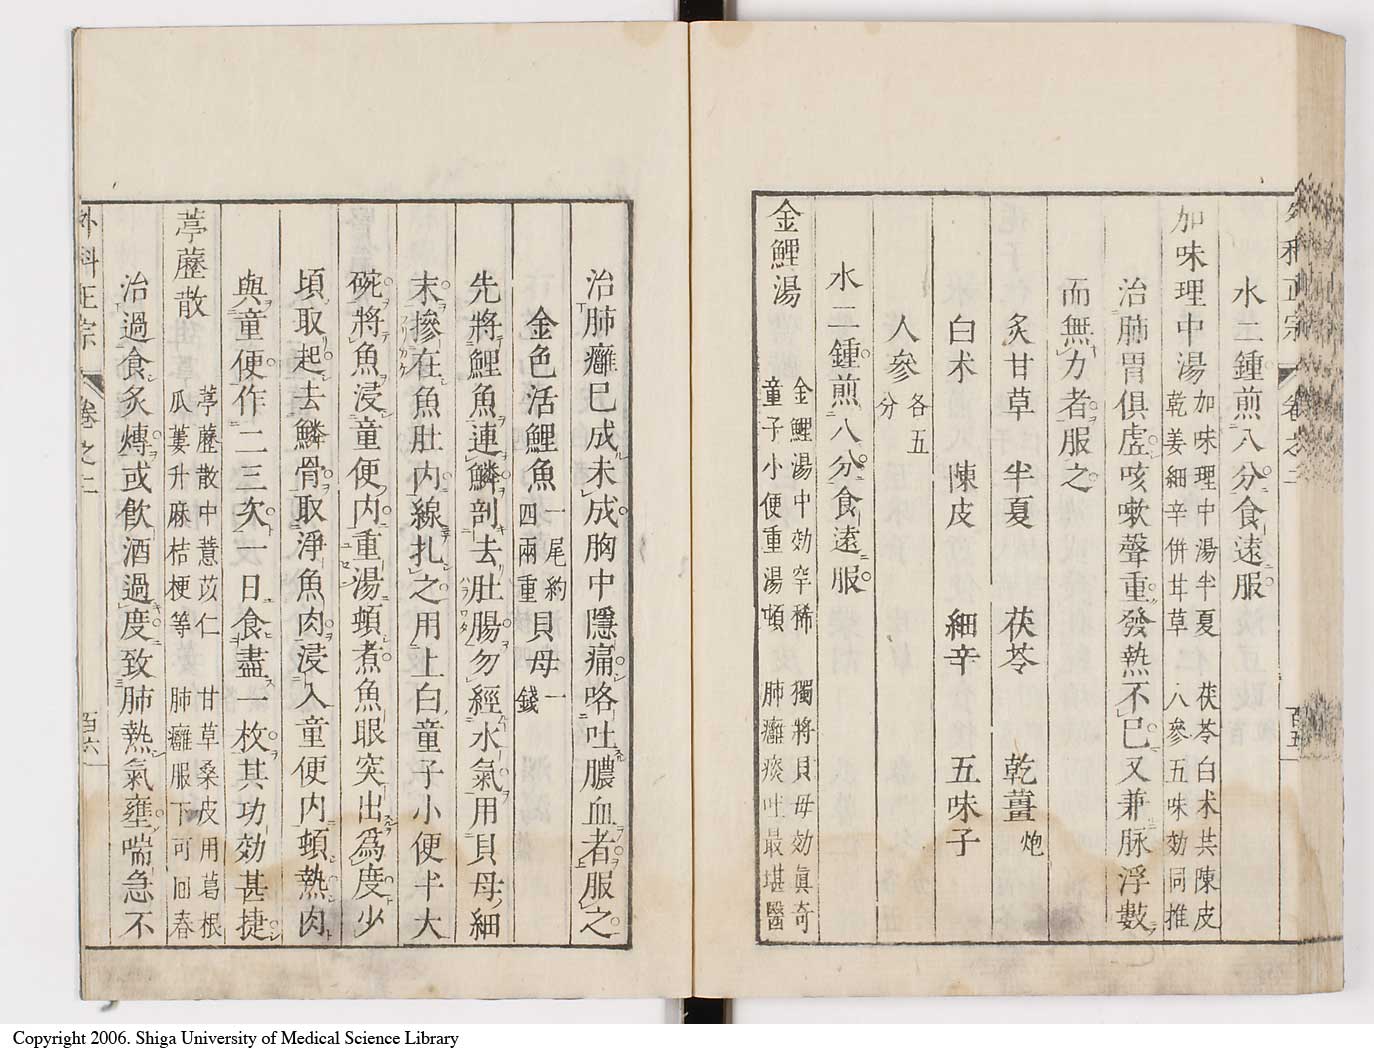 外科正宗 卷之二 百五
水二鍾煎八分食遠服
加味理中湯 加味理中湯半夏 茯苓白术共陳皮
乾姜細辛併甘草 人參五味効同推
治肺胃俱虛咳嗽聲重發熱不已又兼脉浮數
而無力者服之
炙甘草 半夏 茯苓 乾薑炮
白术 陳皮 細辛 五味子
人參 各五分
水二鍾煎八分食遠服
金鯉湯 金鯉湯中効罕稀 獨將貝母効眞奇
童子小便重湯頓 肺癰痰吐最堪醫
治肺癰已成未成胸中隱痛咯吐膿血者服之
金色活鯉魚 一尾約四兩重 貝母 一錢
先將鯉魚連鱗剖去肚腸勿經水氣用貝母細
末摻在魚肚内線扎之用上白童子小便半大
碗將魚浸童便内重湯頓煮魚眼突出爲度少
頃取起去鱗骨取淨魚肉浸入童便内頓熱肉
與童便作二三次一日食盡一枚其功効甚捷
葶藶散 葶藶散中薏苡仁 甘草桑皮用葛根
瓜蔞升麻桔梗等 肺癰服下可回春
治過食炙煿或飲酒過度致肺熱氣壅喘急不
外科正宗 卷之二 百六
Copyright 2006. Shiga University of Medical Science Library